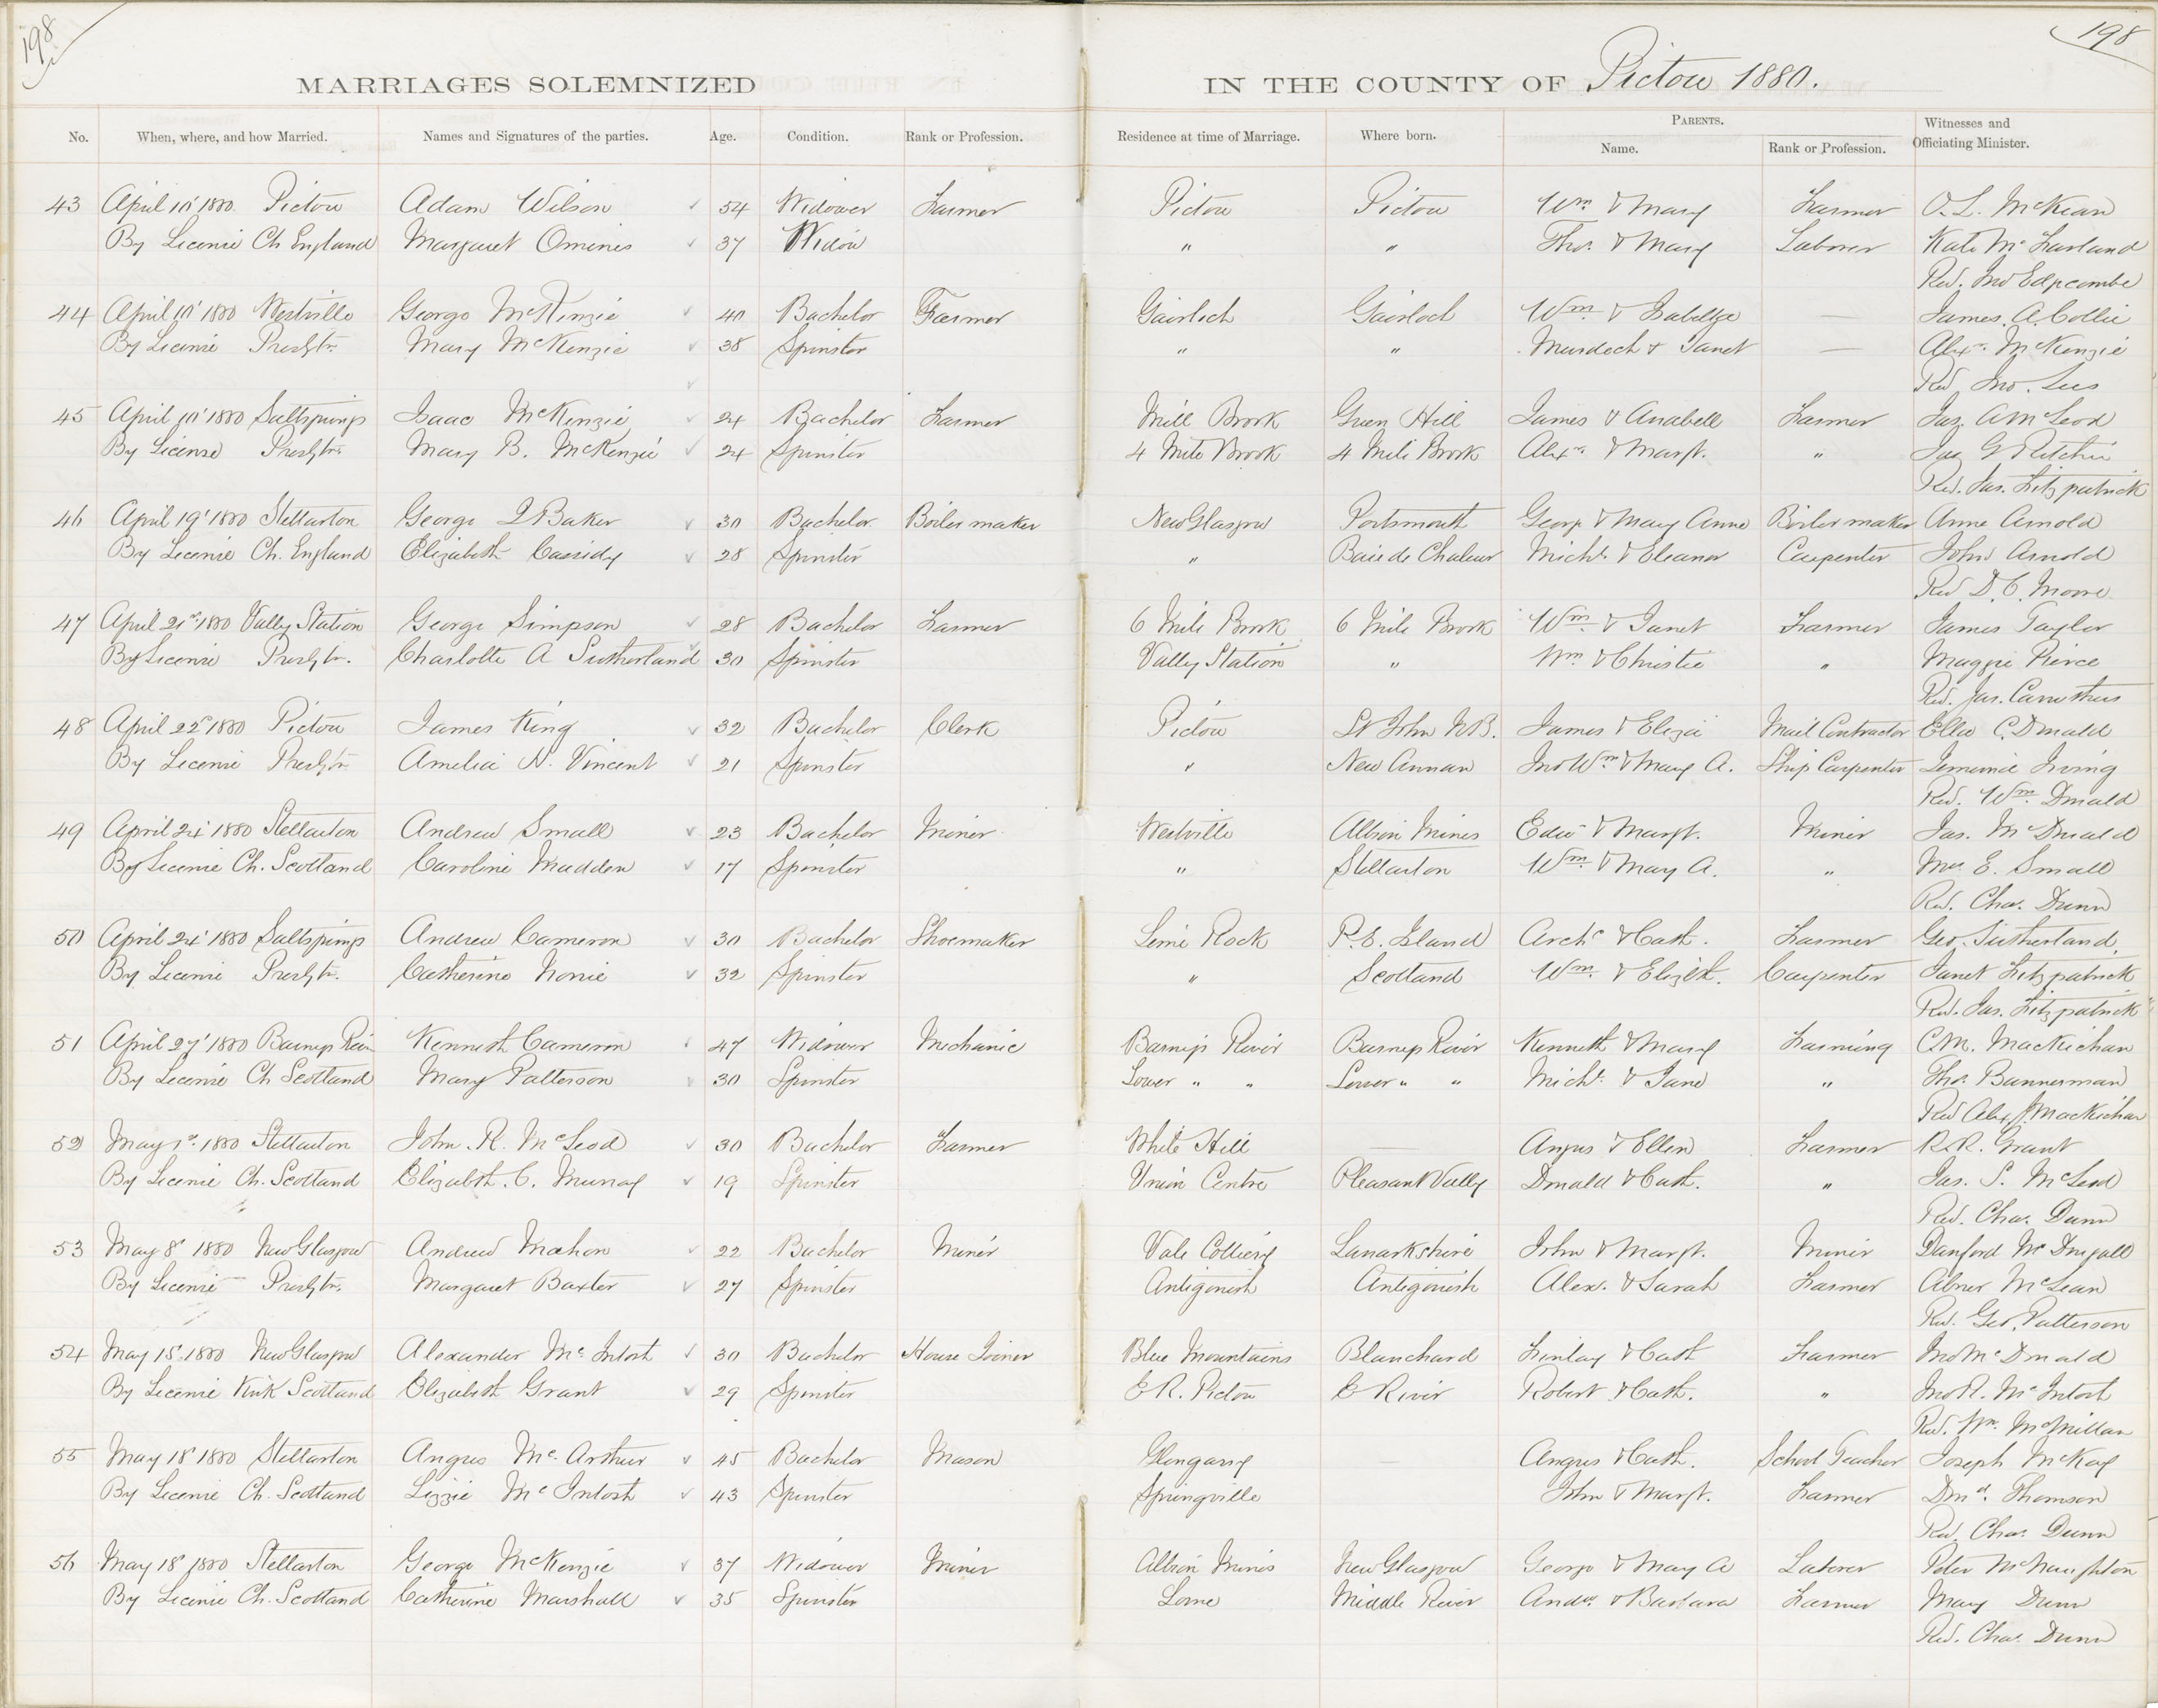 198
198
MARRIAGES SOLEMNIZED IN THE COUNTY OF Pictou 1880.
No. When, where, and how Married. Names and Signatures of the parties. Age. Condition. Rank or Profession. Residence at time of Marriage. Where born. PARENTS. Name. Rank or Profession. Witnesses and Officiating Minister.
43 April 10' 1880 Pictou Adam Wilson 54 Widower Farmer Pictou Pictou Wm & Mary Farmer O. L. McKean
By License Ch England Margaret Ominis 37 Widow " " Thos. & Mary Laborer Kate McFarland
Rev. Jno Edgcombe
44 April 10' 1880 Westville George McKenzie 40 Bachelor Farmer Gairloch Gairloch Wm & Isabella — James. A. Collie
By License Presbtn. Mary McKenzie 38 Spinster " " Murdoch & Janet — Alexr. McKenzie
Rev. Jno. Lees
45 April 10' 1880 Saltsprings Isaac McKenzie 24 Bachelor Farmer Mill Brook Green Hill James & Anabell Farmer Jas. A McLeod
By License Presbtn. Mary B. McKenzie 24 Spinster 4 Mile Brook 4 Mile Brook Alexr. & Margt. " Jas G Ritchie
Rev. Jas. Fitzpatrick
46 April 19' 1880 Stellarton George Baker 30 Bachelor Boiler maker New Glasgow Portsmouth George & Mary Anne Boiler maker Anne Arnold
By License Ch. England Elizabeth Cassidy 28 Spinster " Baie de Chaleur Michl. & Eleanor Carpenter John Arnold
Rev D. C. Moore
47 April 21st 1880 Vally Station George Simpson 28 Bachelor Farmer 6 Mile Brook 6 Mile Brook Wm & Janet Farmer James Taylor
By License Presbtn. Charlotte A Sutherland 30 Spinster Vally Station " Wm & Christie " Maggie Pierce
Rev. Jas. Carruthers
48 April 22d 1880 Pictou James King 32 Bachelor Clerk Pictou St John N.B. James & Eliza Mail Contractor Ella C. Donald
By License Presbtn Amelia N. Vincent 21 Spinster " New Annan Jno Wm & Mary A. Ship Carpenter Jemima Irving
Rev. Wm. Donald
49 April 24' 1880 Stellarton Andrew Small 23 Bachelor Miner Westville Albion Mines Edwd & Margt. Miner Jas. McDonald
By License Ch. Scotland Caroline Madden 17 Spinster " Stellarton Wm & Mary A. " Mrs. E. Small
Rev. Chas. Dunn
50 April 24' 1880 Saltsprings Andrew Cameron 30 Bachelor Shoemaker Lime Rock P. E. Island Archd & Cath. Farmer Geo. Sutherland
By License Presbtn. Catherine Norrie 32 Spinster " Scotland Wm. & Elizbth. Carpenter Janet Fitzpatrick
Rev. Jas. Fitzpatrick
51 April 27' 1880 Barneys River Kenneth Cameron 47 Widower Mechanic Barneys River Barneys River Kenneth & Mary Farming C.M. MacKichan
By License Ch Scotland Mary Patterson 30 Spinster Lower " " Lower " " Michl. & Jane " Thos. Bannerman
Rev Alex J. MacKichan
52 May 1st. 1880 Stellarton John. R. McLeod 30 Bachelor Farmer White Hill — Angus & Ellen Farmer R. R. Grant
By License Ch. Scotland Elizabth. C. Murray 19 Spinster Union Centre Pleasant Vally Donald & Cath. " Jas. S. McLeod
Rev. Chas. Dunn
53 May 8' 1880 New Glasgow Andrew Mahon 22 Bachelor Miner Vale Colliery Lanarkshire John & Margt. Miner Danford McDougall
By License Presbtn. Margaret Baxter 27 Spinster Antigonish Antigonish Alex. & Sarah Farmer Abner McLean
Rev. Geo. Patterson
54 May 15' 1880 New Glasgow Alexander McIntosh 30 Bachelor House Joiner Blue Mountains Blanchard Finlay & Cath Farmer Jno McDonald
By License Kirk Scotland Elizabeth Grant 29 Spinster E R. Pictou E River Robert & Cath. " Jno R. McIntosh
Rev. Wm. McMillan
55 May 18' 1880 Stellarton Angus McArthur 45 Bachelor Mason Glengarry — Angus & Cath. School Teacher Joseph McKay
By License Ch. Scotland Lizzie McIntosh 43 Spinster Springville John & Margt. Farmer Dond. Thomson
Rev. Chas. Dunn
56 May 18' 1880 Stellarton George McKenzie 37 Widower Miner Albion Mines New Glasgow George & Mary A Laborer Peter McNaughton
By License Ch. Scotland Catherine Marshall 35 Spinster Lorne Middle River Andw. & Barbara Farmer Mary Dunn
Rev. Chas. Dunn